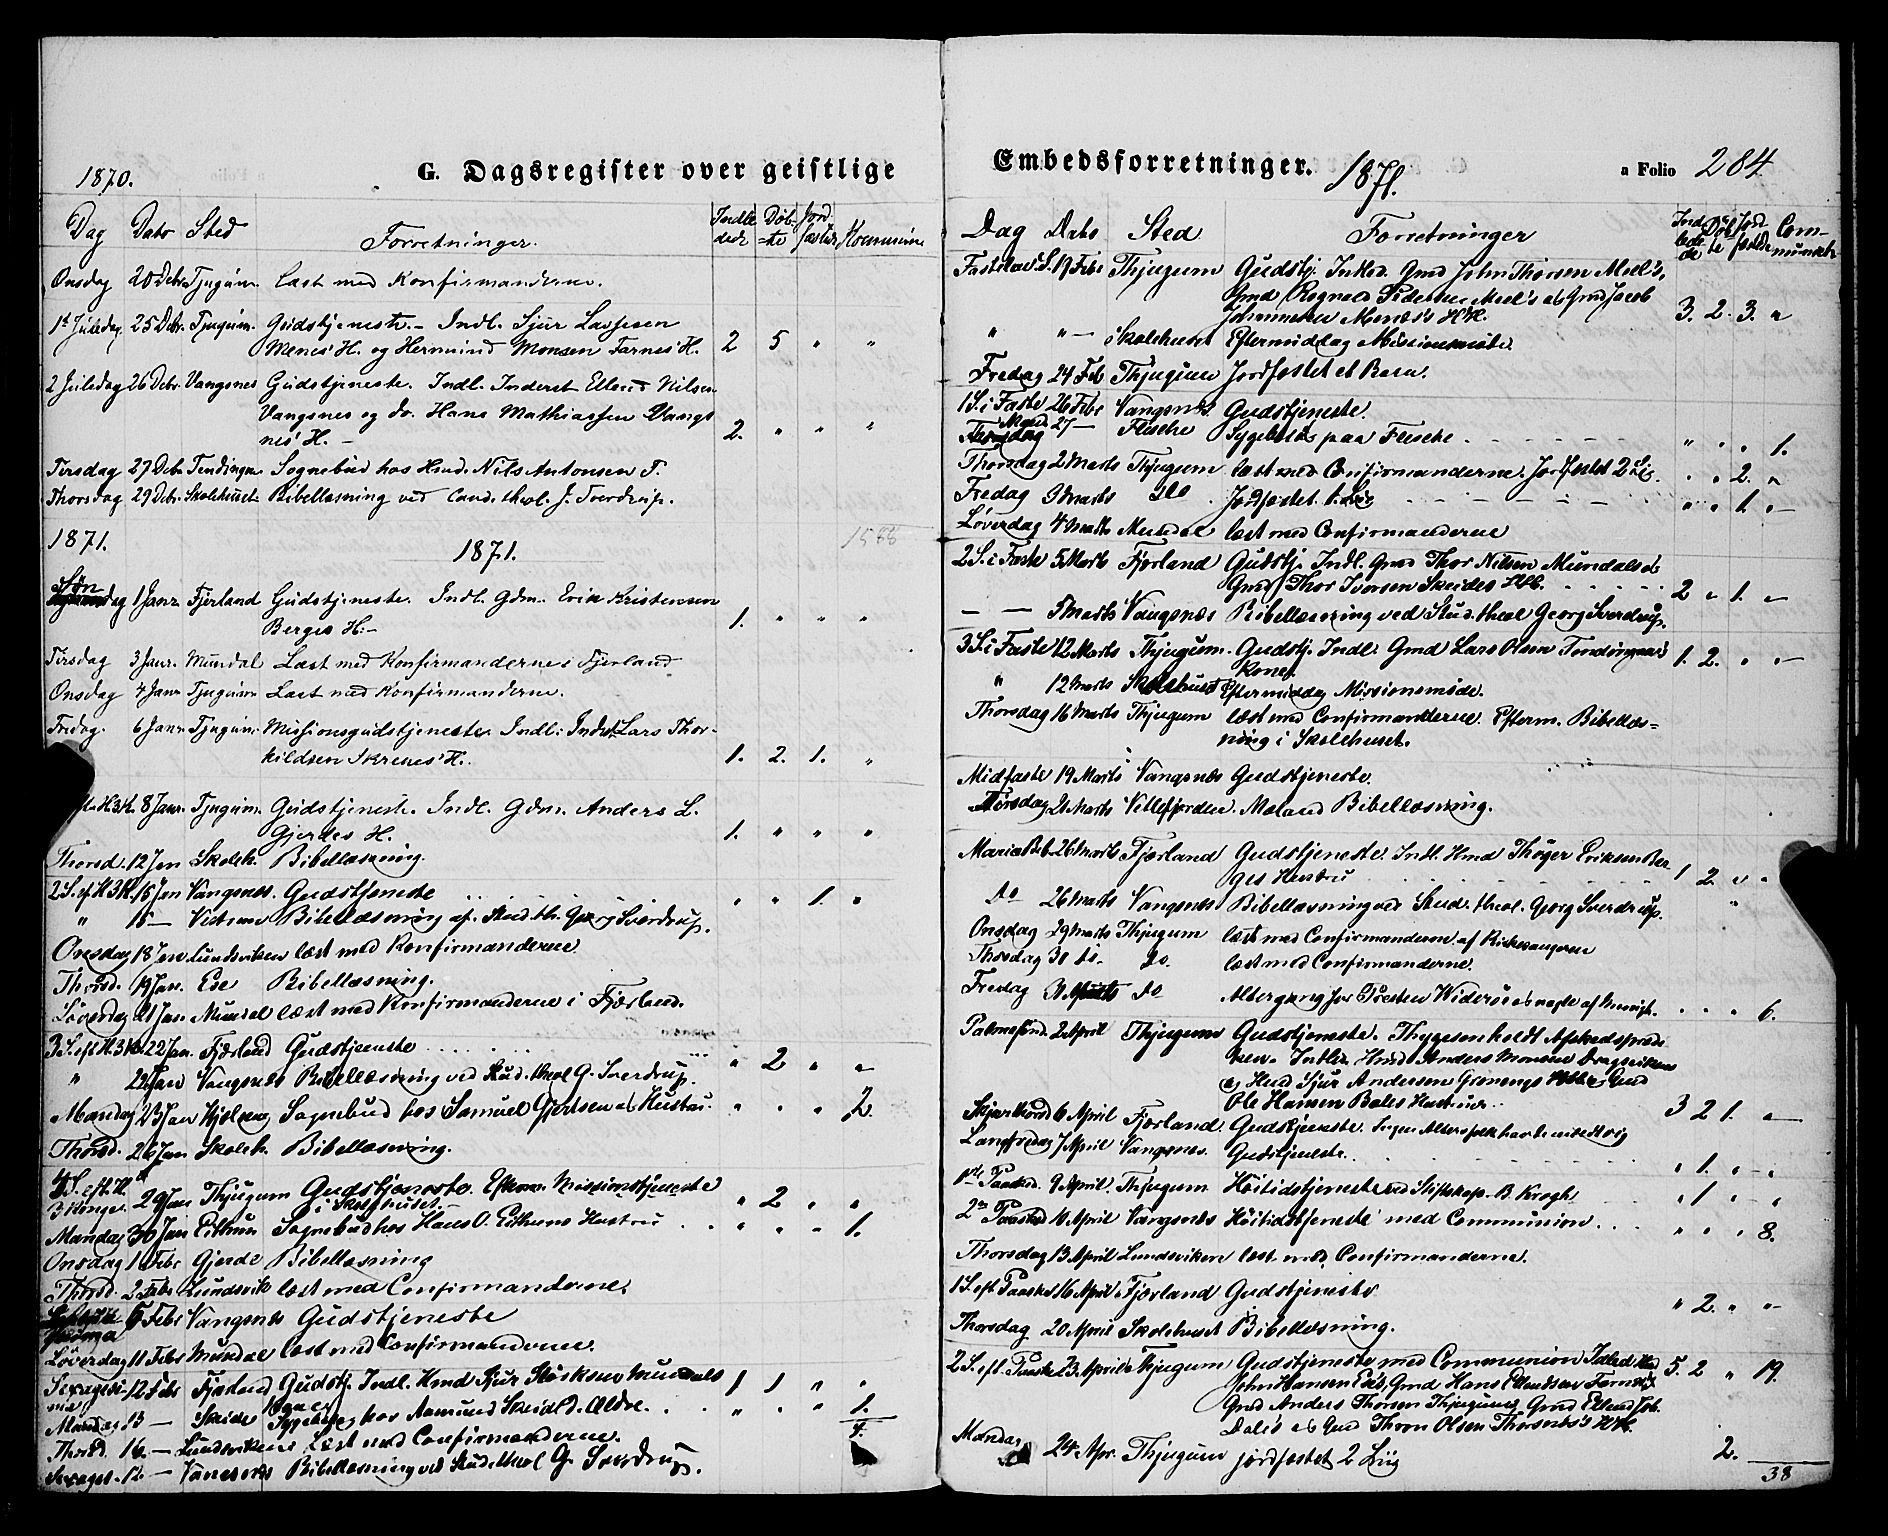 1870. G. Dagsregister over geistlige
Dag Dato Sted Forretninger. Indledede Døbte Jordfæstede Kommunion
Onsdag 20 Debr. Tjugum Læst med Konfirmanderne.
1st Juledag. 25 Debr. Tjugum. Gudstjeneste. - Indl. Sjur Lassesen
Menes' H. og Hermund Monsen Farnes' H. 2 5 " "
2 Juledag 26 Debr. Vangsnes Gudstjeneste. Indl. Inderst Ellend Nilsen
Vangsnes og do. Hans Mathiassen Vangs
nes' H. - 2. " " "
Tirsdag 27 Debr. Sognebud hos Nils Antonsen T.
Thorsdag 29 Debr. Skolehuset Bibellæsning ved Cand. theol. J. Sverdrup.
1871. 1871. 1588
Søndag 1 Janr. Fjerland Gudstjeneste. Indl. Gdm. Erik Kristensen
Berges H. - 1. " " "
Tirsdag 3 Janr. Mundal Læst med Konfirmanderne i Fjerland
Onsdag 4 Janr. Tjugum Læst med Konfirmanderne.
Fredag. 6 Janr. Tjugum Missionsgudstjeneste. Indl. Indst. Lars Thor-
kildsen H. 1. 2. 1. "
H3K. 8 Janr. Tjugum. Gudstjeneste. Indl. Gdm. Anders L.
Gjerdes H. 1. " " "
Thorsd. 12 Jan Skoleh. Bibellæsning.
2 S. ef. H3K. 15 Jan Vangsnes. Gudstjeneste " " 1. "
" 15 - Bibellæsning af Stud. th. Georg Sverdrup.
Onsdag 18 Jan. Lundsviken læst med Konfirmanderne
Thorsd. 19 Jan. Ese Bibellæsning.
Løverdag 21 Jan. Mundal læst med Konfirmanderne i Fjærland.
3 S. eft. H3K. 22 Jan. Fjærland Gudstjeneste " 2 " "
" 22 Jan Vangsnes Bibellæsning ved Stud. theol G. Sverdrup.
Mandag 23 Jan Sognebud hos Samuel Gjertsen og Hustru. " " " 2.
Thorsd. 26 Jan Skoleh. Bibellæsning.
4 S. eft. H. 3 Konger 29 Jan Thjugum Gudstjeneste. Efterm. Missionstjeneste
i Skolehuset. " 2 " "
Mandag 30 Jan Eithun Sognebud hos Hans O. Eithuns Hustru " " " 1.
Onsdag 1 Febr Gjerde Bibellæsning
Thorsd. 2 Febr Lundsvik læst med Confirmanderne.
5 Febr Vangsnes Gudstjeneste
Løverdag 11 Febr Mundal læst med Confirmanderne.
Sexagesima 12 Febr Fjærland Gudstj. Indl. Hmd Sjur Mundals 1 1 " "
Mandag 13 - Skeide Sygebesøg hos Aamund Skeid d. Ældre. " " " 1.
4.
Thorsd. 16 - Lundsviken læst med Confirmanderne.
Sexages. 12 - Vangsnes Bibellæsning ved Stud. theol G. Sverdrup.
Embedsforretninger. 1871. a Folio 284
Dag Dato Sted Forretninger Indledede Døbte Jordfæstede Communik.
Fastelavns S. 19 Febr Thjugum Gudstj. Indled. Gmd John Thorsen Meel's,
Gmd Rognald Pedersen Meel's og Gmd Jacob
Johannesen Menes's HH. 3. 2. 3. "
" " - i Skolehuset Eftermiddag Missionsmøde.
Fredag 24 Feb Thjugum Jordfæstet et Barn.
1 S. i Faste 26 Febr Vangsnes. Gudstjeneste.
Mandag 27 - Flesche Sygebesøg paa Flesche. " " " 1.
Thorsdag 2 Marts Thjugum læst med Confirmanderne. Jordfæstet 2 Lig. " " 2. "
Fredag 3 Marts do. Jordfæstet 1 Lig " " 1. "
Løverdag 4 Marts Mundal læst med Confirmanderne
2 S. i Faste 5 Marts Fjærland Gudstj. Indl. Gmd Thor Nilsen Mundals og
Gmd Thor Iversen Skeides HH. 2 " 1. "
- - 5 Marts Vangsnes Bibellæsning ved Stud. theol Georg Sverdrup.
3 S. i Faste 12 Marts Thjugum. Gudstj. Indl. Gmd Lars Olsen
Kone. 1. 2. " "
" 12 Marts Skolehuset Eftermiddag Missionsmøde.
Thorsdag 16 Marts Thjugum læst med Confirmanderne. Efterm. Bibellæs-
ning i Skolehuset.
Midfaste 19 Marts Vangsnes Gudstjeneste.
Tirsdag 21 Marts Vetlefjorden. Meland Bibellæsning.
Maria Beb. 26 Marts Fjærland Gudstjeneste. Indl. Hmd Thøger Eriksen Ber-
ges Hustru 1 2. " "
Do 26 Marts Vangsnes Bibellæsning ved Stud. theol. Georg Sverdrup.
Onsdag 29 Marts Thjugum læst med Confirmanderne af Kirkesangeren
Thorsdag 30 do. do. læst med Confirmanderne.
Fredag 31 Marts do Altergang for Presten Widerøe og nogle af Menigh. " " " 6.
Palmesønd. 2 April Thjugum Gudstjeneste. Thygesen holdt Afskedspræd
ken. Indled. Hmd Anders Monsen Dragsvikens
og Hmd Sjur Andersen Grønengs HH og Gmd
Ole Hansen Bales Hustruer. 3 2 1. "
Skjærthorsd 6 April Fjærland. Gudstjeneste. Ingen Altersfolk havde indfundet sig
Langfredag 7 April Vangsnes. Gudstjeneste. " 1. " "
1ste Paasked. 9 April. Thjugum Høitidstjeneste ved Stiftskap. B. Krogh " 1 " "
2n Paasked 10 April Vangsnes Høitidstjeneste med Communion. " " " 8.
Thorsdag 13 April Lundsviken læst med Confirmanderne.
1 S. eft. Paaske 16 April Fjærland Gudstjeneste " 2. " "
Thorsdag 20 April Skolehuset Bibellæsning.
2 S. eft. Paaske 23 April Thjugum Gudstjeneste med Communion Indled. Hmd 5. 2 " 19.
John Hansen Eses, Gmd Hans Ellendsen Farnes's
Gmd Anders Thorsen Thjugums, Gmd Ellend Job.
Dales og Gmd Thorn Olsen Thorsnes's HH.
Mandag 24 Apr. Thjugum jordfæstet 2 Liig 2.
38